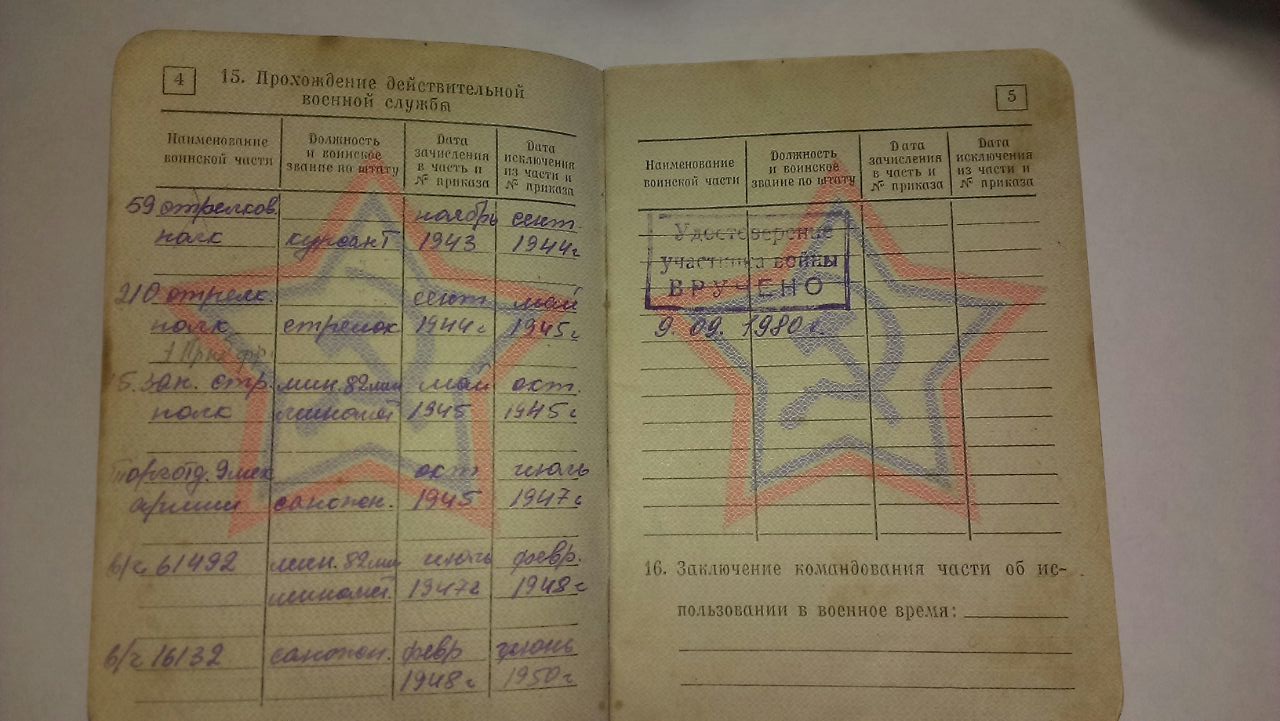 4
15. Прохождение действительной
военной службы
Наименование
воинской части
Должность
и воинское
звание по штату
Дата
зачисления
в часть и
№ приказа
Дата
исключения
из части и
№ приказа
59 стрелков. ноябрь сент
полк курсант 1943 1944г
210 стрелк. сент май
полк стрелок 1944г 1945г
1 Приб фр
зап. стр. мин. 82мм май окт.
полк миномёт 1945 1945г
отд. 9 мех окт июль
армии сапожн. 1945 1947г
в/ч 61492 мин. 82мм июль февр.
миномёт. 1947г 1948г
в/ч 16132 сапожн. февр июнь
1948г 1950г
5
Наименование
воинской части
Должность
и воинское
звание по штату
Дата
зачисления
в часть и
№ приказа
Дата
исключения
из части и
№ приказа
Удостоверение
участника войны
ВРУЧЕНО
9. 09. 1980 г.
16. Заключение командования части об ис-
пользовании в военное время: